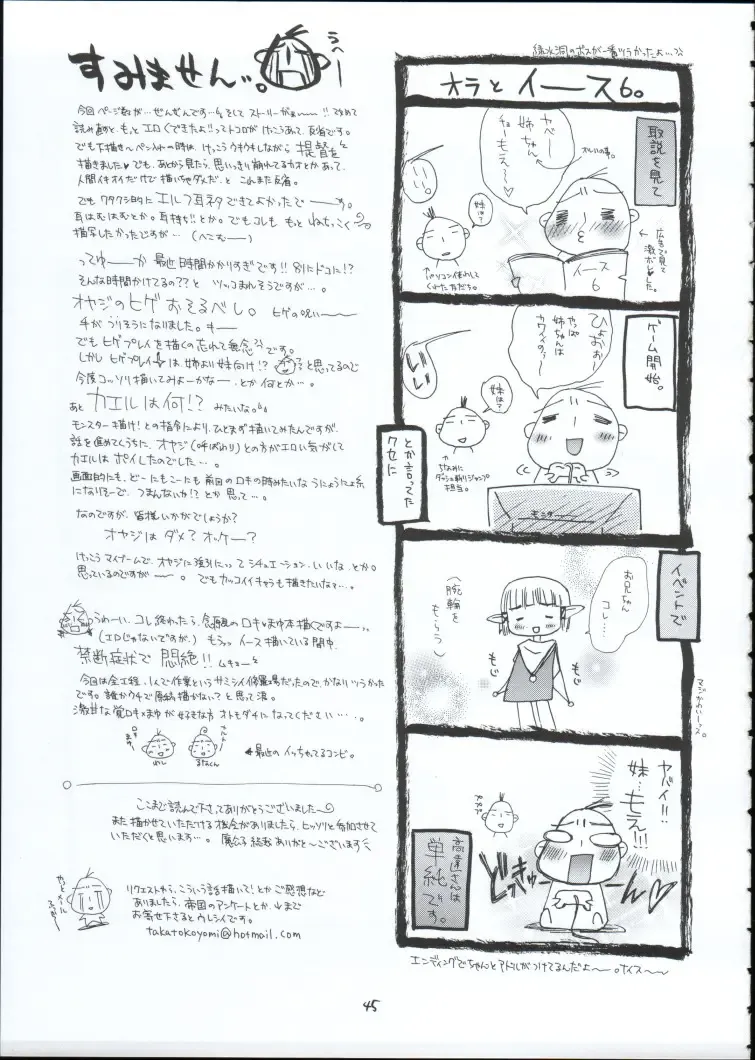 すみません…。
うへー
今回ページ数が…ぜんぜんです…そしてストーリーがぁー!!改めて
読み直すと、もっとエロくできたよ!!ってトコロがけっこうあって、反省です。
でも下描き～ペン入れの時は、けっこうウキウキしながら提督を
描きました でも、あとから見たら、思いっきり崩れてるカオとかあって、
人間イキオイだけで描いちゃダメだ、とこれまた反省。
でもワタクシ的にエルフ耳ネタできてよかったでーーす。
耳はむはむとか。耳持ち!!とか。でもコレももっとねちっこく
描写したかったですが…(へこむー)
ってゆーか最近時間かかりすぎです!!別にドコに!?
そんな時間かけてるの??とツッコまれそうですが…。
オヤジのヒゲおそるべし。ヒゲの呪いーー
手がうりそうになりました。キー
でもヒゲプレイを描くの忘れて無念です。
しかしヒゲプレイは、姉より妹向け!?と思ってるので
今度コッソリ描いてみよーかなー、とか何とか…。
あとカエルは何!?みたいな。
モンスター描け!との指令により、ひとまず描いてみたんですが、
話を進めてくうちに、オヤジ(呼ばわり)との方がエロい気がして
カエルはポイしたのでした…。
画面的にも、どーにもこーにも前回のロキの時みたいなうにょうにょ系
になりそーで、つまんないか!?とか思って…。
なのですが、皆様いかがでしょうか?
オヤジはダメ?オッケー?
けっこうマイブームで、オヤジに強引にってシチュエーション、いいな、とか。
思っているのですがーー。でもカッコイイキャラも描きたいなァ…。
うわーい、コレ終わったら、念願のロキ×まゆ本描くですよー…
(エロじゃないですが、)もうっイース描いている間中、
禁断症状で悶絶!!ムキョー
今回は全工程、1人で作業というサミシイ修羅場だったので、かなりツラかった
です。誰かウチで原稿描かない?と思って涙。
激甘な覚ロキ×まゆが好きな方オトモダチになってください…。
←最近のイッちゃてるコンビ。
ここまで読んで下さってありがとうございました～
また描かせていただける機会がありましたら、ヒッソリと参加させて
いただくと思います…。
リクエストやら、こういう話描いて!とかご感想など
ありましたら、帝国のアンケートとか、↓まで
お寄せ下さるとウレシイです。
takatokoyomi@hotmail.com
緑水洞のボスが一番ツラかったよ…
オラとイース6。
取説を見て
ヤベー
姉ちゃん
チョーもえ～
オルハの事。
いい。
妹は?
イース
6
広告で見て
激ホレました。
ゲーム開始。
ひょおおー
やっぱ
姉ちゃんは
カワイイのぅー
いい
妹は?
ちなみに
ダッシュ斬りジャンプ
担当。
モニター
とか言ってた
クセに
イベントで
お兄ちゃん
コレ…
(腕輪を
もらう)
もじ
もじ
マジかわいーッス。
ヤバイ!!
妹…もえ!!!
どきゅーーん
高遠さんは
単純です。
エンディングでちゃんとアドルがつけてるんだよ～～。ナイス～～
45